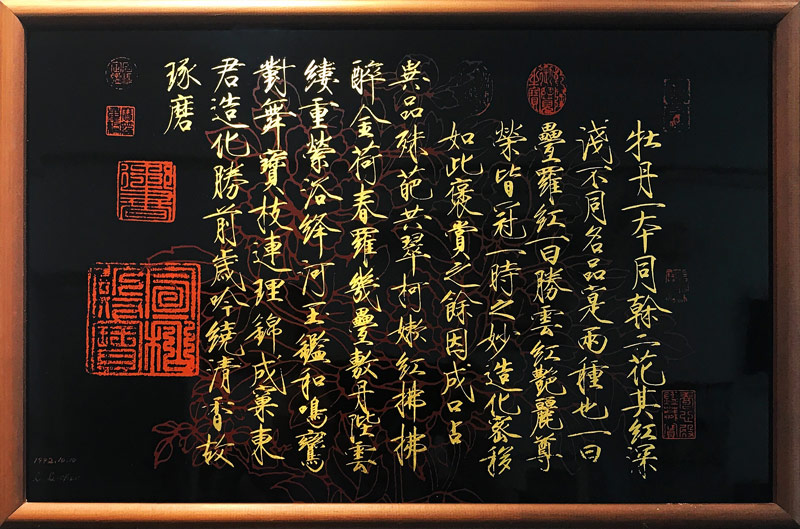 牡丹一本同幹二花其紅深
淺不同名品實兩種也一曰
疊羅紅一曰勝雲紅艷麗尊
榮皆冠一時之妙造化密移
如此褒賞之餘因成口占
異品殊葩共翠柯嫩紅拂拂
醉金荷春羅幾疊敷丹陛雲
縷重縈浴絳河玉鑑和鳴鸞
對舞寶枝連理錦成窠東
君造化勝前歲吟繞清香故
琢磨
1992.10.10